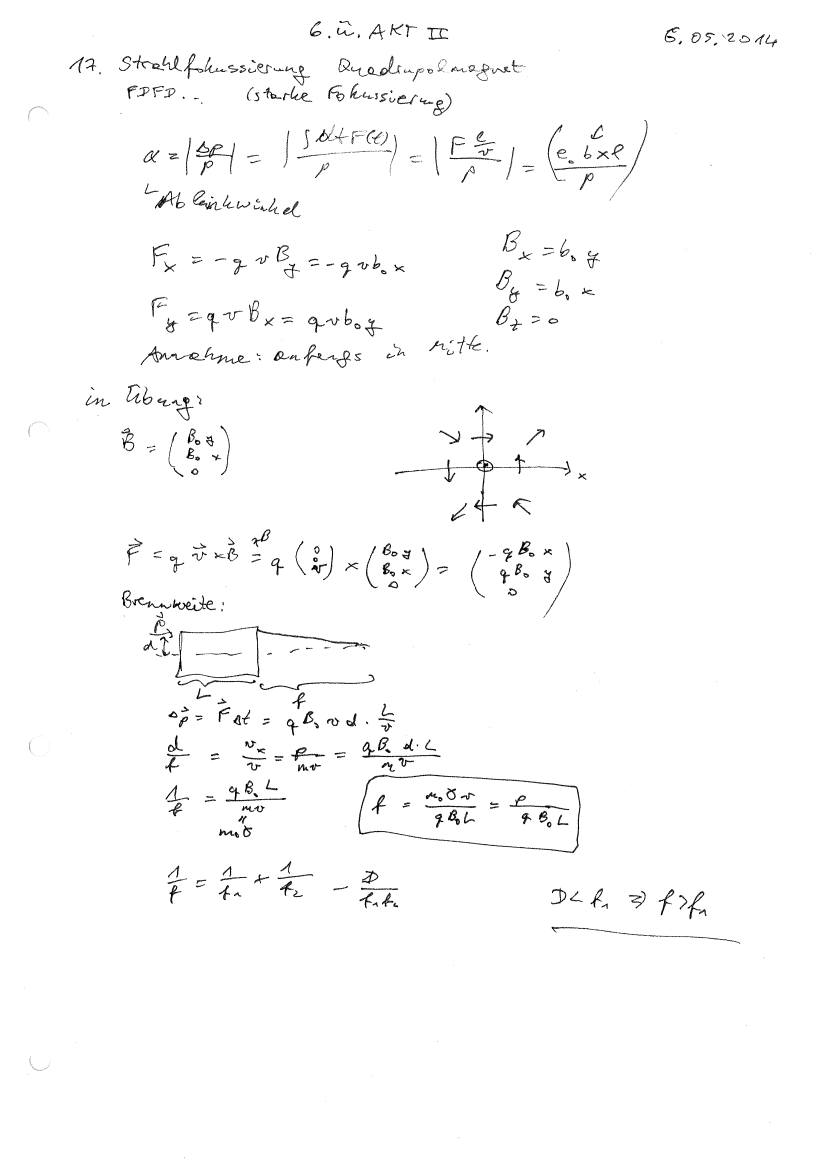 6. Ü. AKT II 6.05.2014
17. Strahlfokussierung Quadrupolmagnet
FDFD... (starke Fokussierung)
α = |Δp/p| = |∫ dt F(t) / p| = |F ℓ/v / p| = (e₀ b x ℓ / p)
↳ Ablenkwinkel
F_x = -q v B_y = -q v b₀ x B_x = b₀ y
B_y = b₀ x
F_y = q v B_x = q v b₀ y B_z = 0
Annahme: anfangs in Mitte.
in Übung:
B⃗ = (B₀ y, B₀ x, 0)
x
F⃗ = q v⃗ × B⃗ = q (0, 0, v) × (B₀ y, B₀ x, 0) = (-q B₀ x, q B₀ y, 0)
Brennweite:
p⃗
d
L f
Δp⃗ = F⃗ Δt = q B₀ v d · L/v
d/f = v_x/v = p/mv = q B₀ d · L / m v
1/f = q B₀ L / mv f = m₀ γ v / q B₀ L = p / q B₀ L
m₀γ
1/f = 1/f₁ + 1/f₂ - D/f₁f₂ D < f₁ ⇒ f > f₁